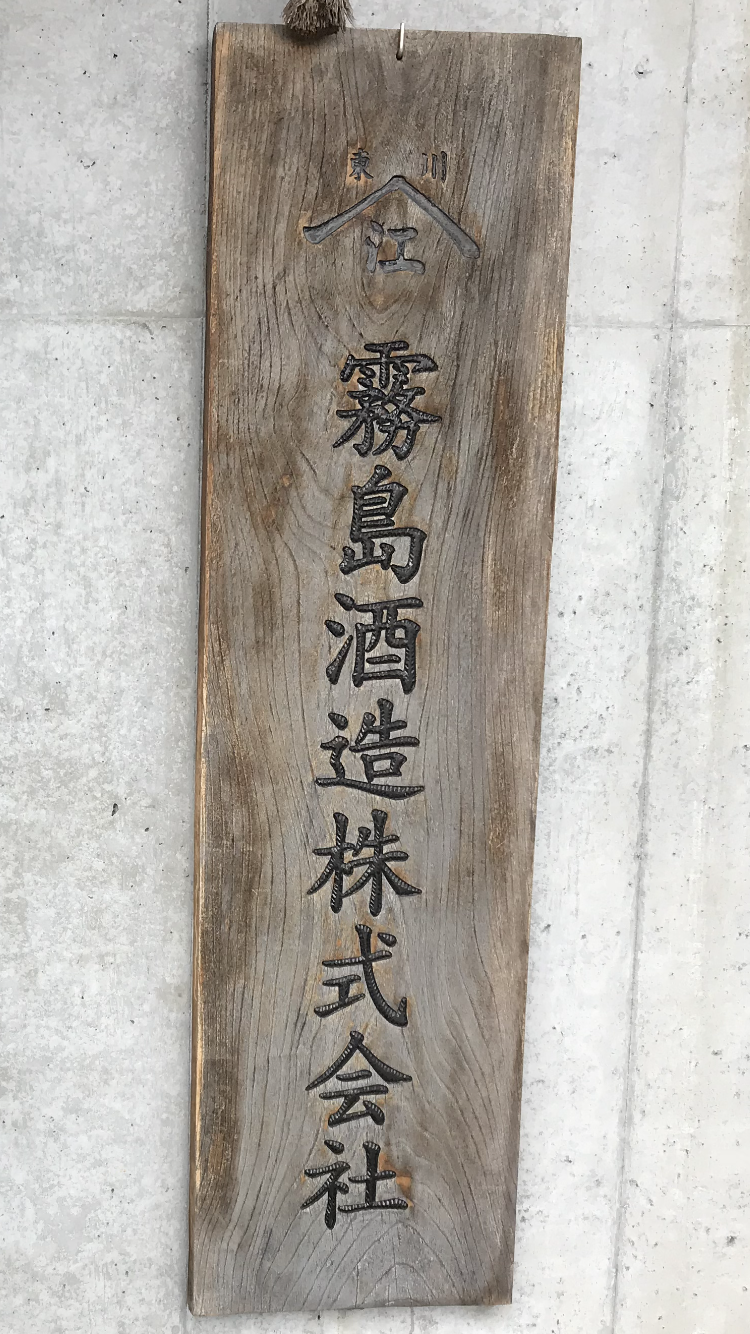 川東
江
霧島酒造株式会社